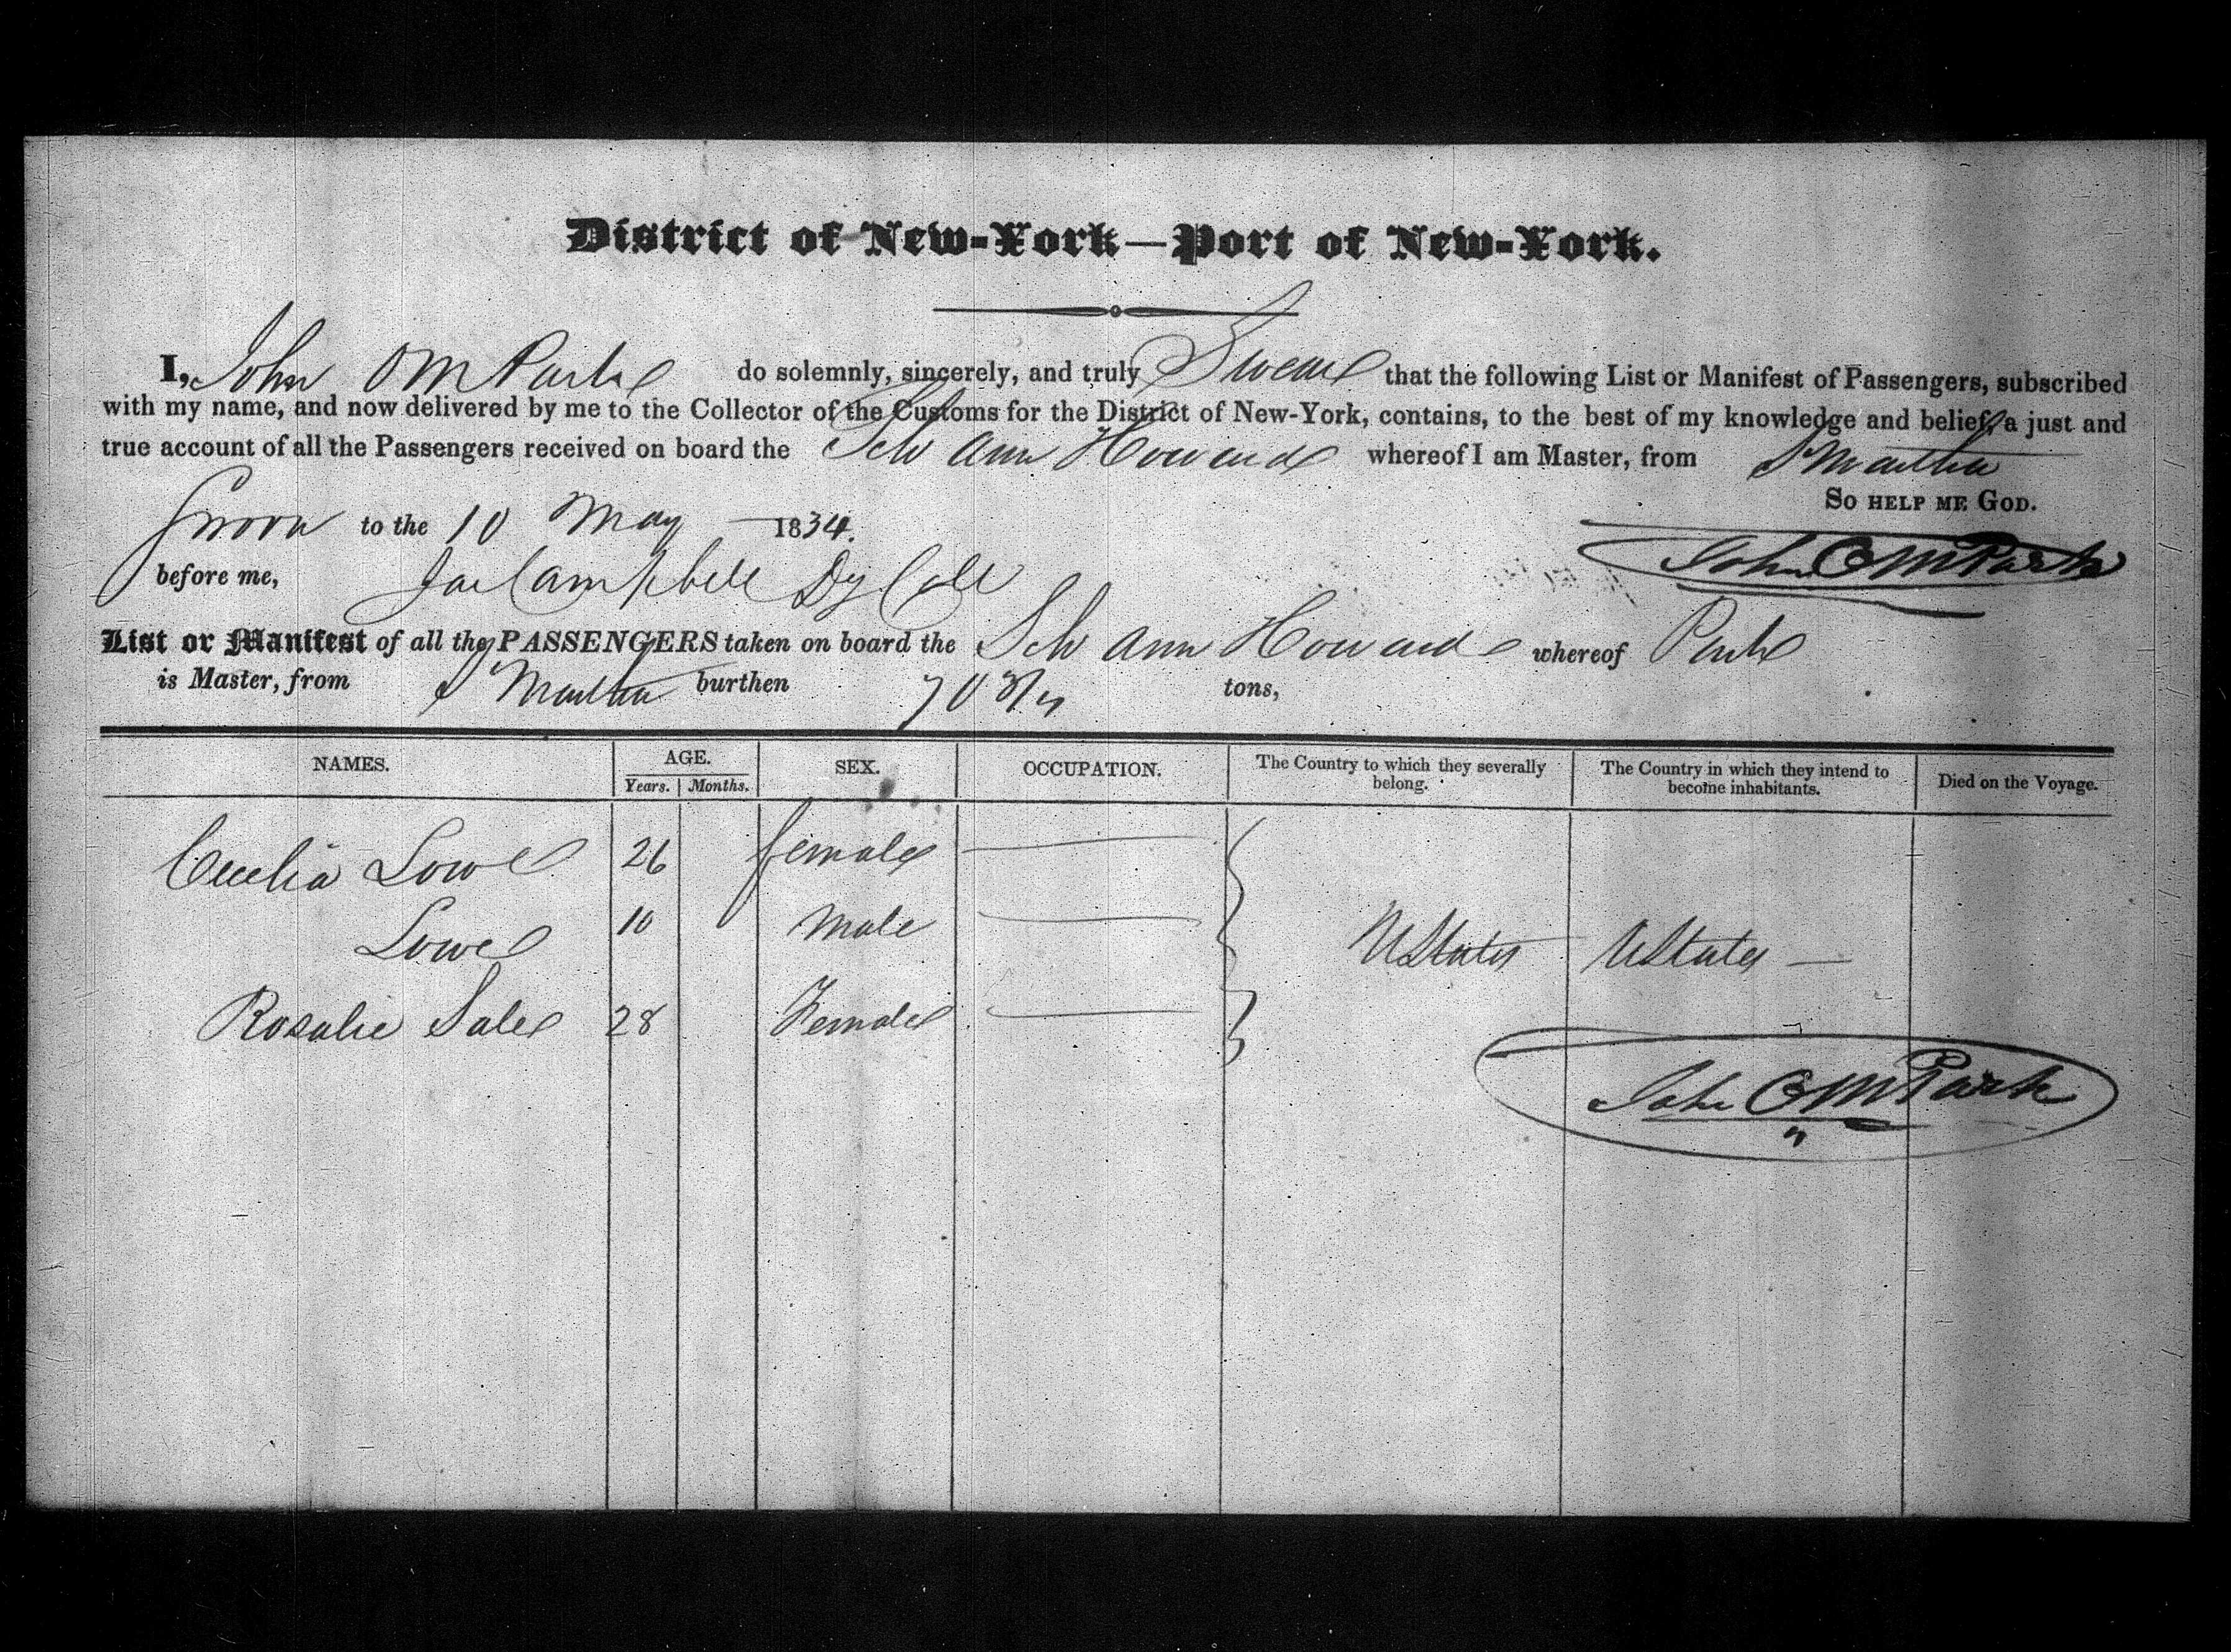 District of New-York—Port of New-York.
I, John O M Park do solemnly, sincerely, and truly Swear that the following List or Manifest of Passengers, subscribed
with my name, and now delivered by me to the Collector of the Customs for the District of New-York, contains, to the best of my knowledge and belief, a just and
true account of all the Passengers received on board the Sch Ann Howard whereof I am Master, from St Martha
So help me God.
Sworn to the 10 May 1834.
John O M Park
before me, Jas Campbell Dy Coll
List or Manifest of all the PASSENGERS taken on board the Sch Ann Howard whereof Park
is Master, from St Martha burthen 70 tons,
NAMES. AGE. SEX. OCCUPATION. The Country to which they severally belong. The Country in which they intend to become inhabitants. Died on the Voyage.
Years. Months.
Cecelia Lowe 26 female
Lowe 10 Male
UStates UStates —
Rosalie Sale 28 Female
John O M Park